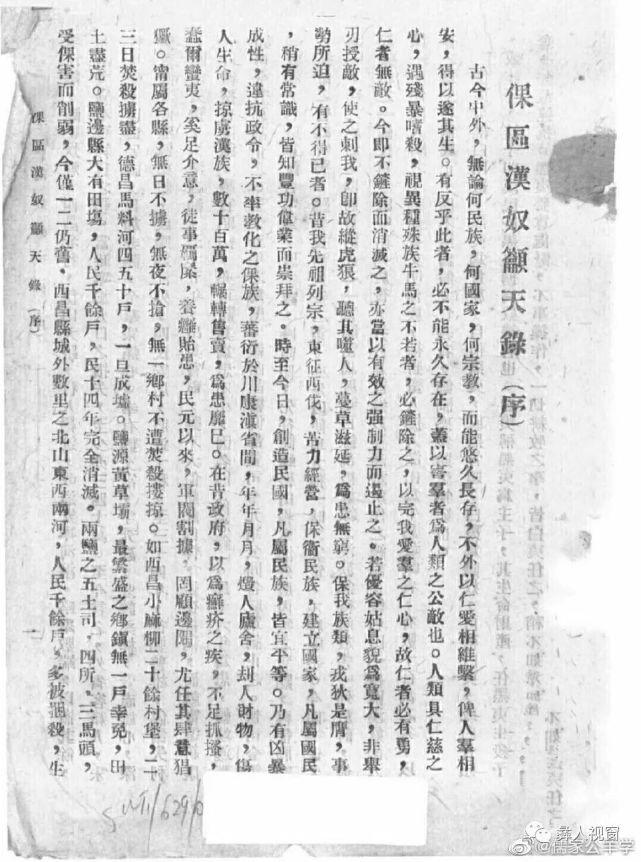 倮區漢奴籲天錄（序）
古今中外，無論何民族，何國家，何宗教，而能悠久長存，不外以仁愛相維繫，俾人羣相
安，得以遂其生。有反乎此者，必不能永久存在，蓋以害羣者爲人類之公敵也。人類具仁慈之
心，遇殘暴嗜殺，視異種殊族牛馬之不若者，必鏟除之，以完我愛羣之仁心，故仁者必有勇，
仁者無敵。今即不鏟除而消滅之，亦當以有效之强制力而遏止之。若優容姑息貌爲寬大，非舉
刃授敵，使之刺我，卽故縱虎狼，聽其噬人，蔓草滋延，爲患無窮。保我族類，戎狄是膺，事
勢所迫，有不得已者。昔我先祖列宗，東征西伐，苦力經營，保衛民族，建立國家，凡屬國民
，稍有常識，皆知豐功偉業而崇拜之。時至今日，創造民國，凡屬民族，皆宜平等。乃有凶暴
成性，違抗政令，不率教化之倮族，蕃衍於川康滇省間，年年月月，燬人廬舍，刦人財物，傷
人生命，掠虜漢族，數十百萬，輾轉售賣，爲患靡巳。在昔政府，以爲癬疥之疾，不足抓搔，
蠢爾蠻夷，奚足介意，徒事羈縻，養癰貽患，民元以來，軍閥割據，罔顧邊陽，尤任其肆意猖
獗。甯屬各縣，無日不擄，無夜不搶，無一鄉村不遭焚殺摟掠。如西昌小麻柳二十餘村堡，二
三日焚殺擄盡，德昌馬料河四五十戶，一旦成墟。鹽源黃草壩，最繁盛之鄉鎭無一戶幸免，田
土盡荒。鹽邊縣大有田塲，人民千餘戶，民十四年完全消滅。兩鹽之五土司，四所，三馬頭，
受倮害而削弱，今僅一二仍舊。西昌縣城外數里之北山東西兩河，人民千餘戶，多被擄殺，生
倮區漢奴籲天錄（序）
一
彝人视窗
@儒家公羊学